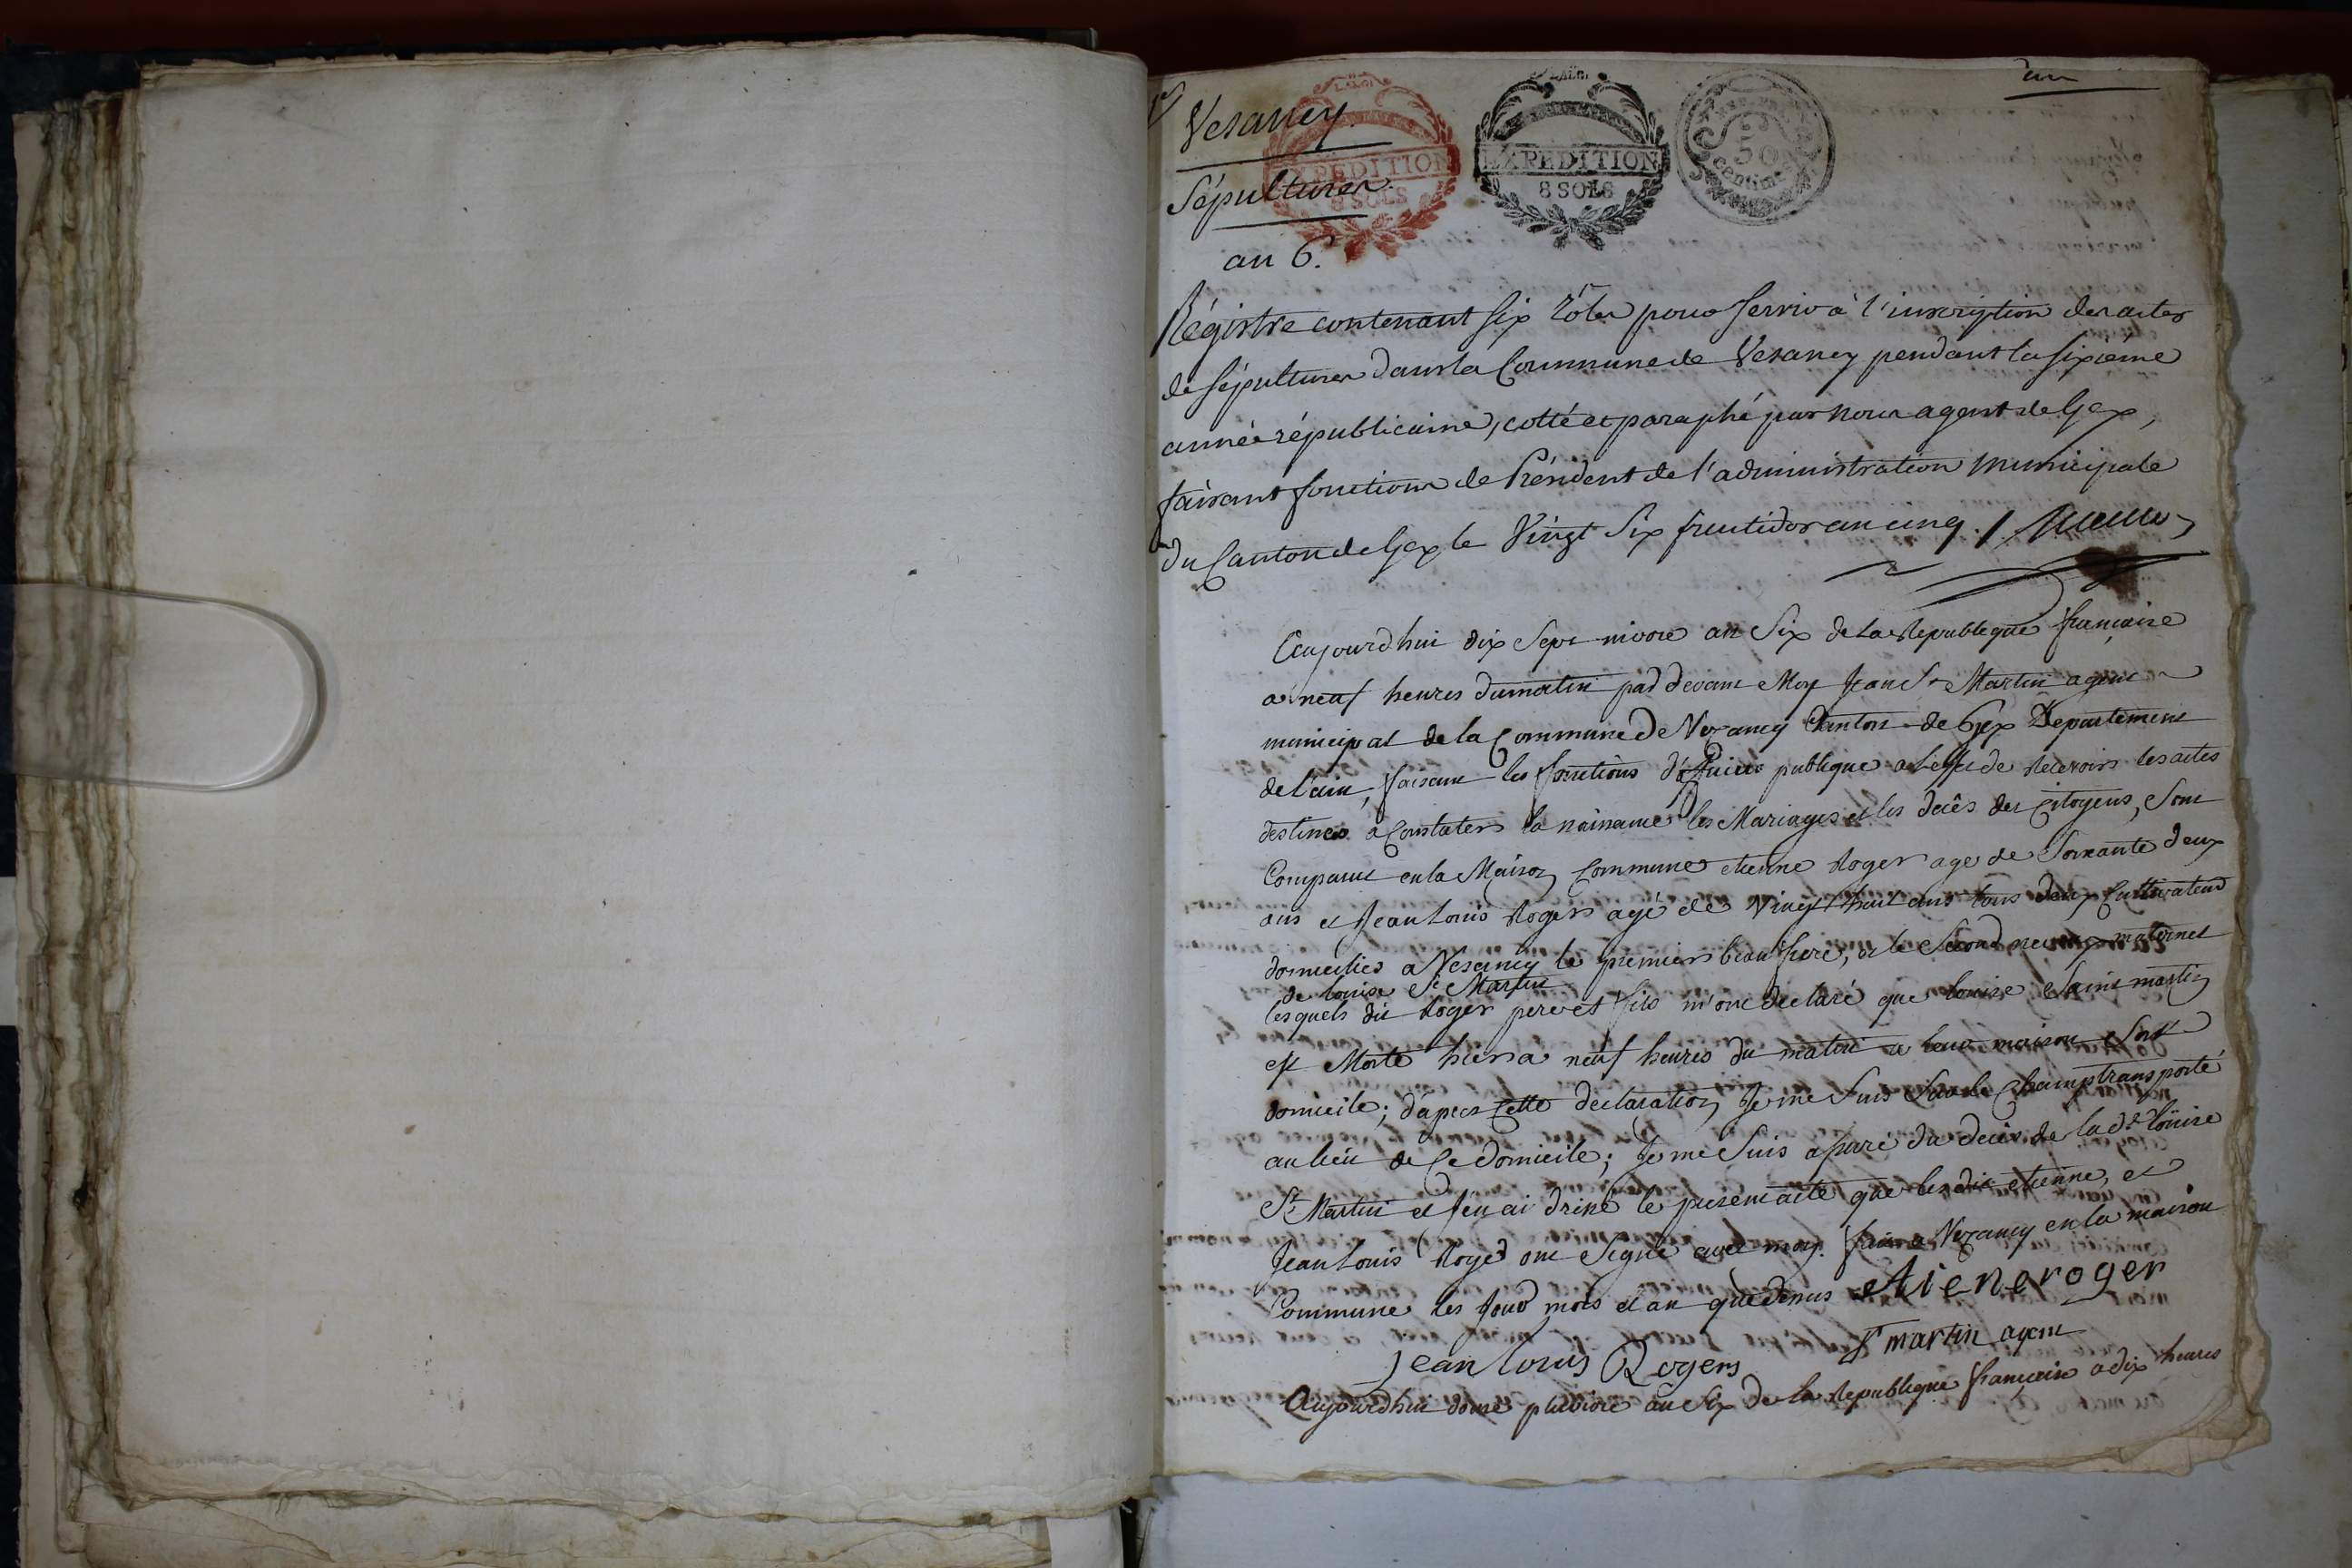 un
Vesancy.
Sépultures.
EXPEDITION
8 SOLS
EXPEDITION
8 SOLS
50
Centimes
an 6.
Régistre contenant six rôles pour servir à l'inscription des actes
de sépultures dans la Commune de Vesancy pendant la sixième
année républicaine, cotté et paraphé par nous agent de Gex,
faisant fonctions de Président de l'administration municipale
du Canton de Gex le Vingt Six fructidor an cinq. /
Aujourdhui dix Sept nivose an Six de la Republeque française
a neuf heures du matin pard devant Moy Jean St Martin agent
municipal de la Commune De Vezancy Canton de Gex Departement
de l'ain, faisant les fonctions d'officier publique a leffet de recevoirs les actes
destines a Constaters la naisance les Mariages et les decês des Citoyens, Sont
Comparut en la Maison Commune etienne Roger age de Soixante deux
ans et Jean Louis Roger agé de Vingt huit ans tous deux Cultivateurs
domicilies a Vesancy le premier beau frere, et le Second neveux maternel
de louise St Martin
lesquels dit Roger pere et fils m'ont declaré que louise Saint martin
est Morte hier a neuf heures du matin a leur maison Sont
domicile; d'apres Cette declaration Je me Suis Sur le Champ transporté
au lieu de Ce domicile; Je me Suis assuré du decês de la dte loüise
St Martin et J'en ai dressé le present acte que les dit etienne, et
Jean Louis Roger ont Signé avec moy. fait a Vezancy en la maison
Commune les Jour mois et an que desus etieneroger
St martin agent
jean louis Rogers
Aujourdhui douse pluviose an Six de la Republeque française a dix heures